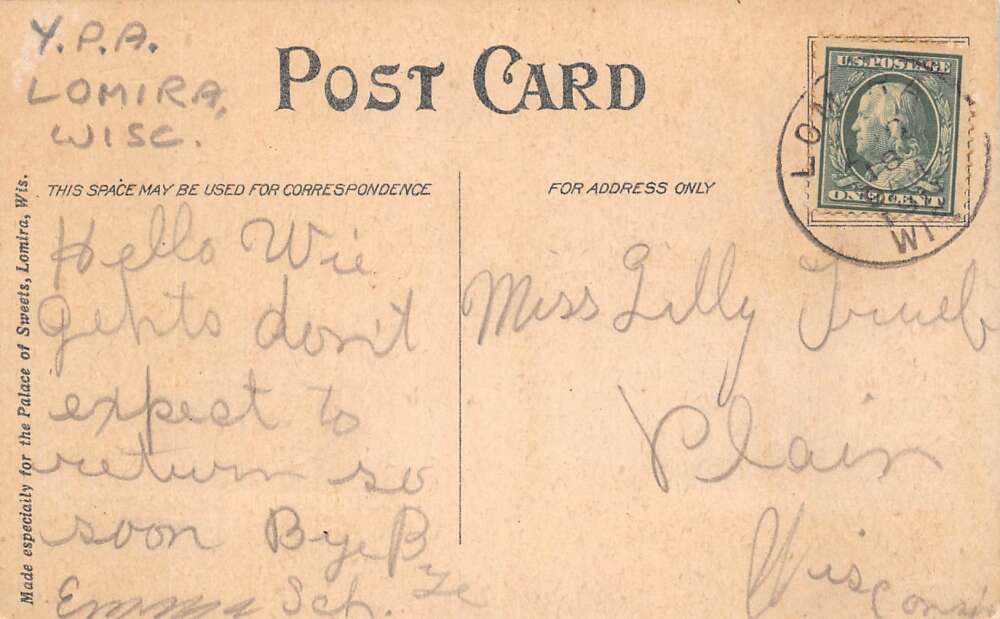 Y.P.A.
LOMIRA,
WISC.
POST CARD
U.S. POSTAGE
ONE CENT
LOM
WI
THIS SPACE MAY BE USED FOR CORRESPONDENCE
FOR ADDRESS ONLY
Made especially for the Palace of Sweets, Lomira, Wis.
Hello Wie
gehts don't
expect to
return so
soon Bye B
ye
Emma Sch.
Miss Lilly
Plain
Wisconsin